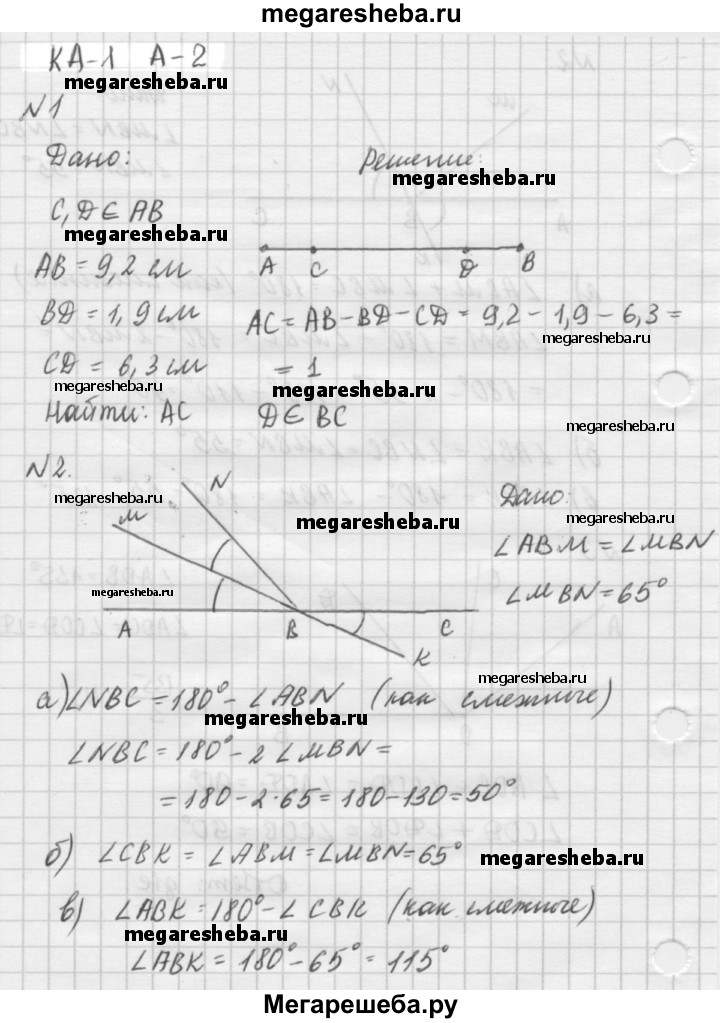 megaresheba.ru
КА-1 А-2
megaresheba.ru
N1
Дано:
Решение:
megaresheba.ru
C, D ∈ AB
megaresheba.ru
A C D B
AB = 9,2 см
BD = 1,9 см
AC = AB - BD - CD = 9,2 - 1,9 - 6,3 =
megaresheba.ru
CD = 6,3 см
= 1
megaresheba.ru
Найти: AC
D ∈ BC
megaresheba.ru
N2.
N
M
Дано:
megaresheba.ru
megaresheba.ru
megaresheba.ru
∠ABM = ∠MBN
megaresheba.ru
∠MBN = 65°
A B C
K
megaresheba.ru
а) ∠NBC = 180° - ∠ABN (как смежные)
megaresheba.ru
∠NBC = 180° - 2 ∠MBN =
= 180 - 2·65 = 180 - 130 = 50°
б) ∠CBK = ∠ABM = ∠MBN = 65°
megaresheba.ru
в) ∠ABK = 180° - ∠CBK (как смежные)
megaresheba.ru
∠ABK = 180° - 65° = 115°
Мегарешеба.ру